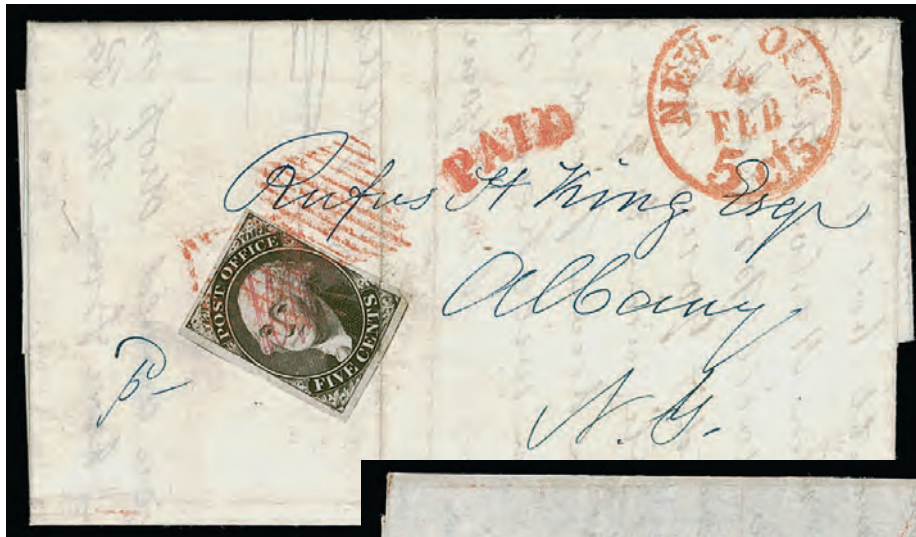 NEW-YORK
4
FEB
5 cts.
PAID
Rufus H King Esqr
Albany
N. Y.
POST OFFICE
FIVE CENTS